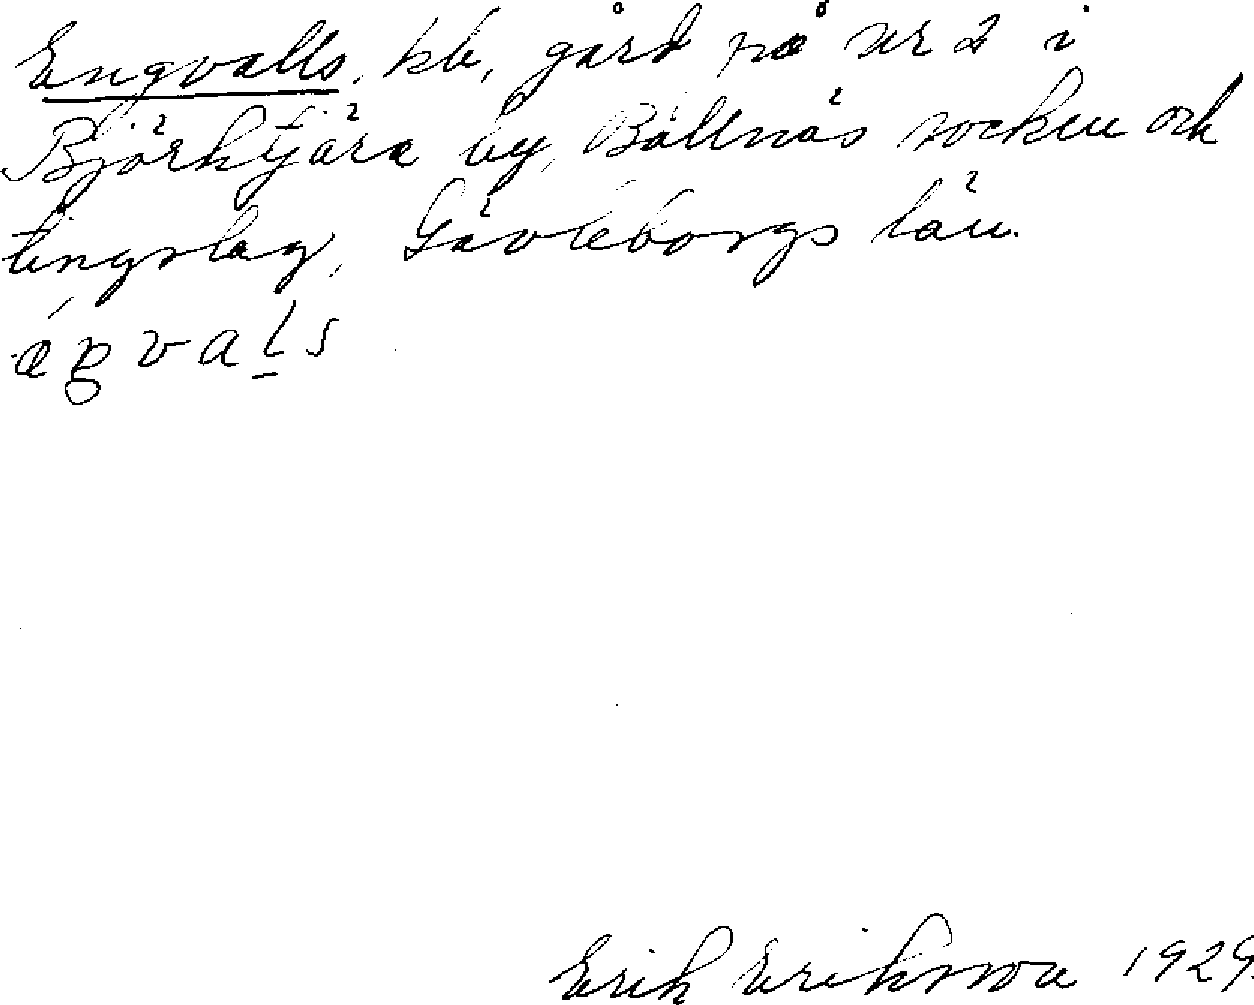 Engvalls, kb, gård på nr 2 i
Björktjära by, Bollnäs socken och
tingslag, Gävleborgs län.
Erik Eriksson 1929.